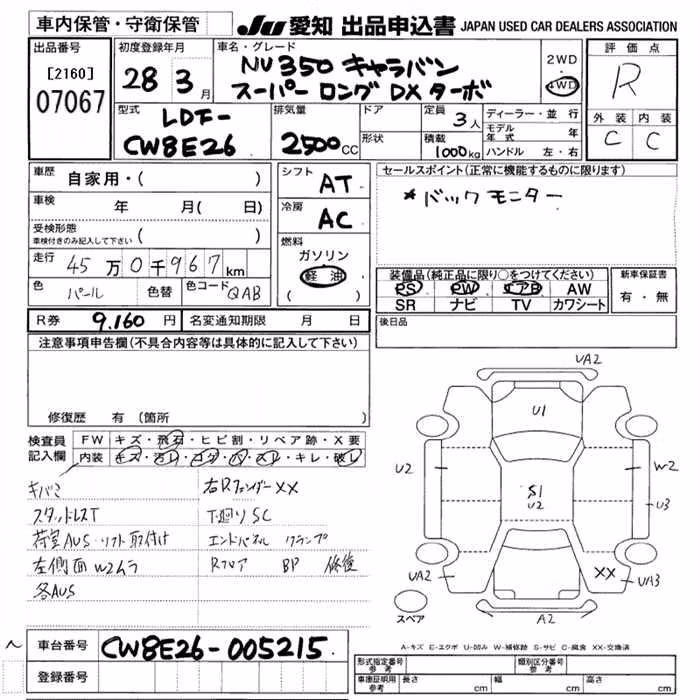 車内保管・守衛保管
JU 愛知 出品申込書 JAPAN USED CAR DEALERS ASSOCIATION
出品番号
[2160]
07067
初度登録年月
28 3月
車名・グレード
NV350 キャラバン
スーパー ロング DX ターボ
2WD
4WD
評価点
R
外装 内装
C C
型式
LDF-
CW8E26
排気量
2500CC
ドア
形状
定員 3人
積載
1000kg
ディーラー・並行
モデル年式 年
ハンドル 左・右
車歴 自家用・( )
車検 年 月( 日)
受検形態
車検付きのみ記入して下さい ( )
走行 45万0千967km
色 パール 色替 色コード QAB
シフト AT
冷房 AC
燃料
ガソリン
軽油
( )
セールスポイント(正常に機能するものに限ります)
*バックモニター
装備品(純正品に限り○をつけてください)
PS PW エアB AW
SR ナビ TV カワシート
新車保証書
有・無
R券 9,160円 名変通知期限 月 日
後日品
注意事項申告欄(不具合内容等は具体的に記入して下さい)
修復歴 有(箇所 )
検査員
記入欄
FW キズ・飛石・ヒビ割・リペア跡・X要
内装 キズ・汚レ・コゲ・穴・スレ・キレ・破レ
キバミ
スタッドレスT
荷室AUS・リフト取付け
左側面W2ムラ
各AUS
右Rフェンダー XX
下廻りSC
エンドパネル クランプ
Rフロア BP 修復
UA2
U1
U2
W2
S1
U2
U3
UA2
XX
UA3
A2
スペア
A-キズ E-エクボ U-凹み W-補修跡 S-サビ C-腐食 XX-交換済
~ 車台番号 CW8E26-005215
登録番号
形式指定番号
参考
類別区分番号
参考
車庫証明用
参考
長さ cm 幅 cm 高さ cm